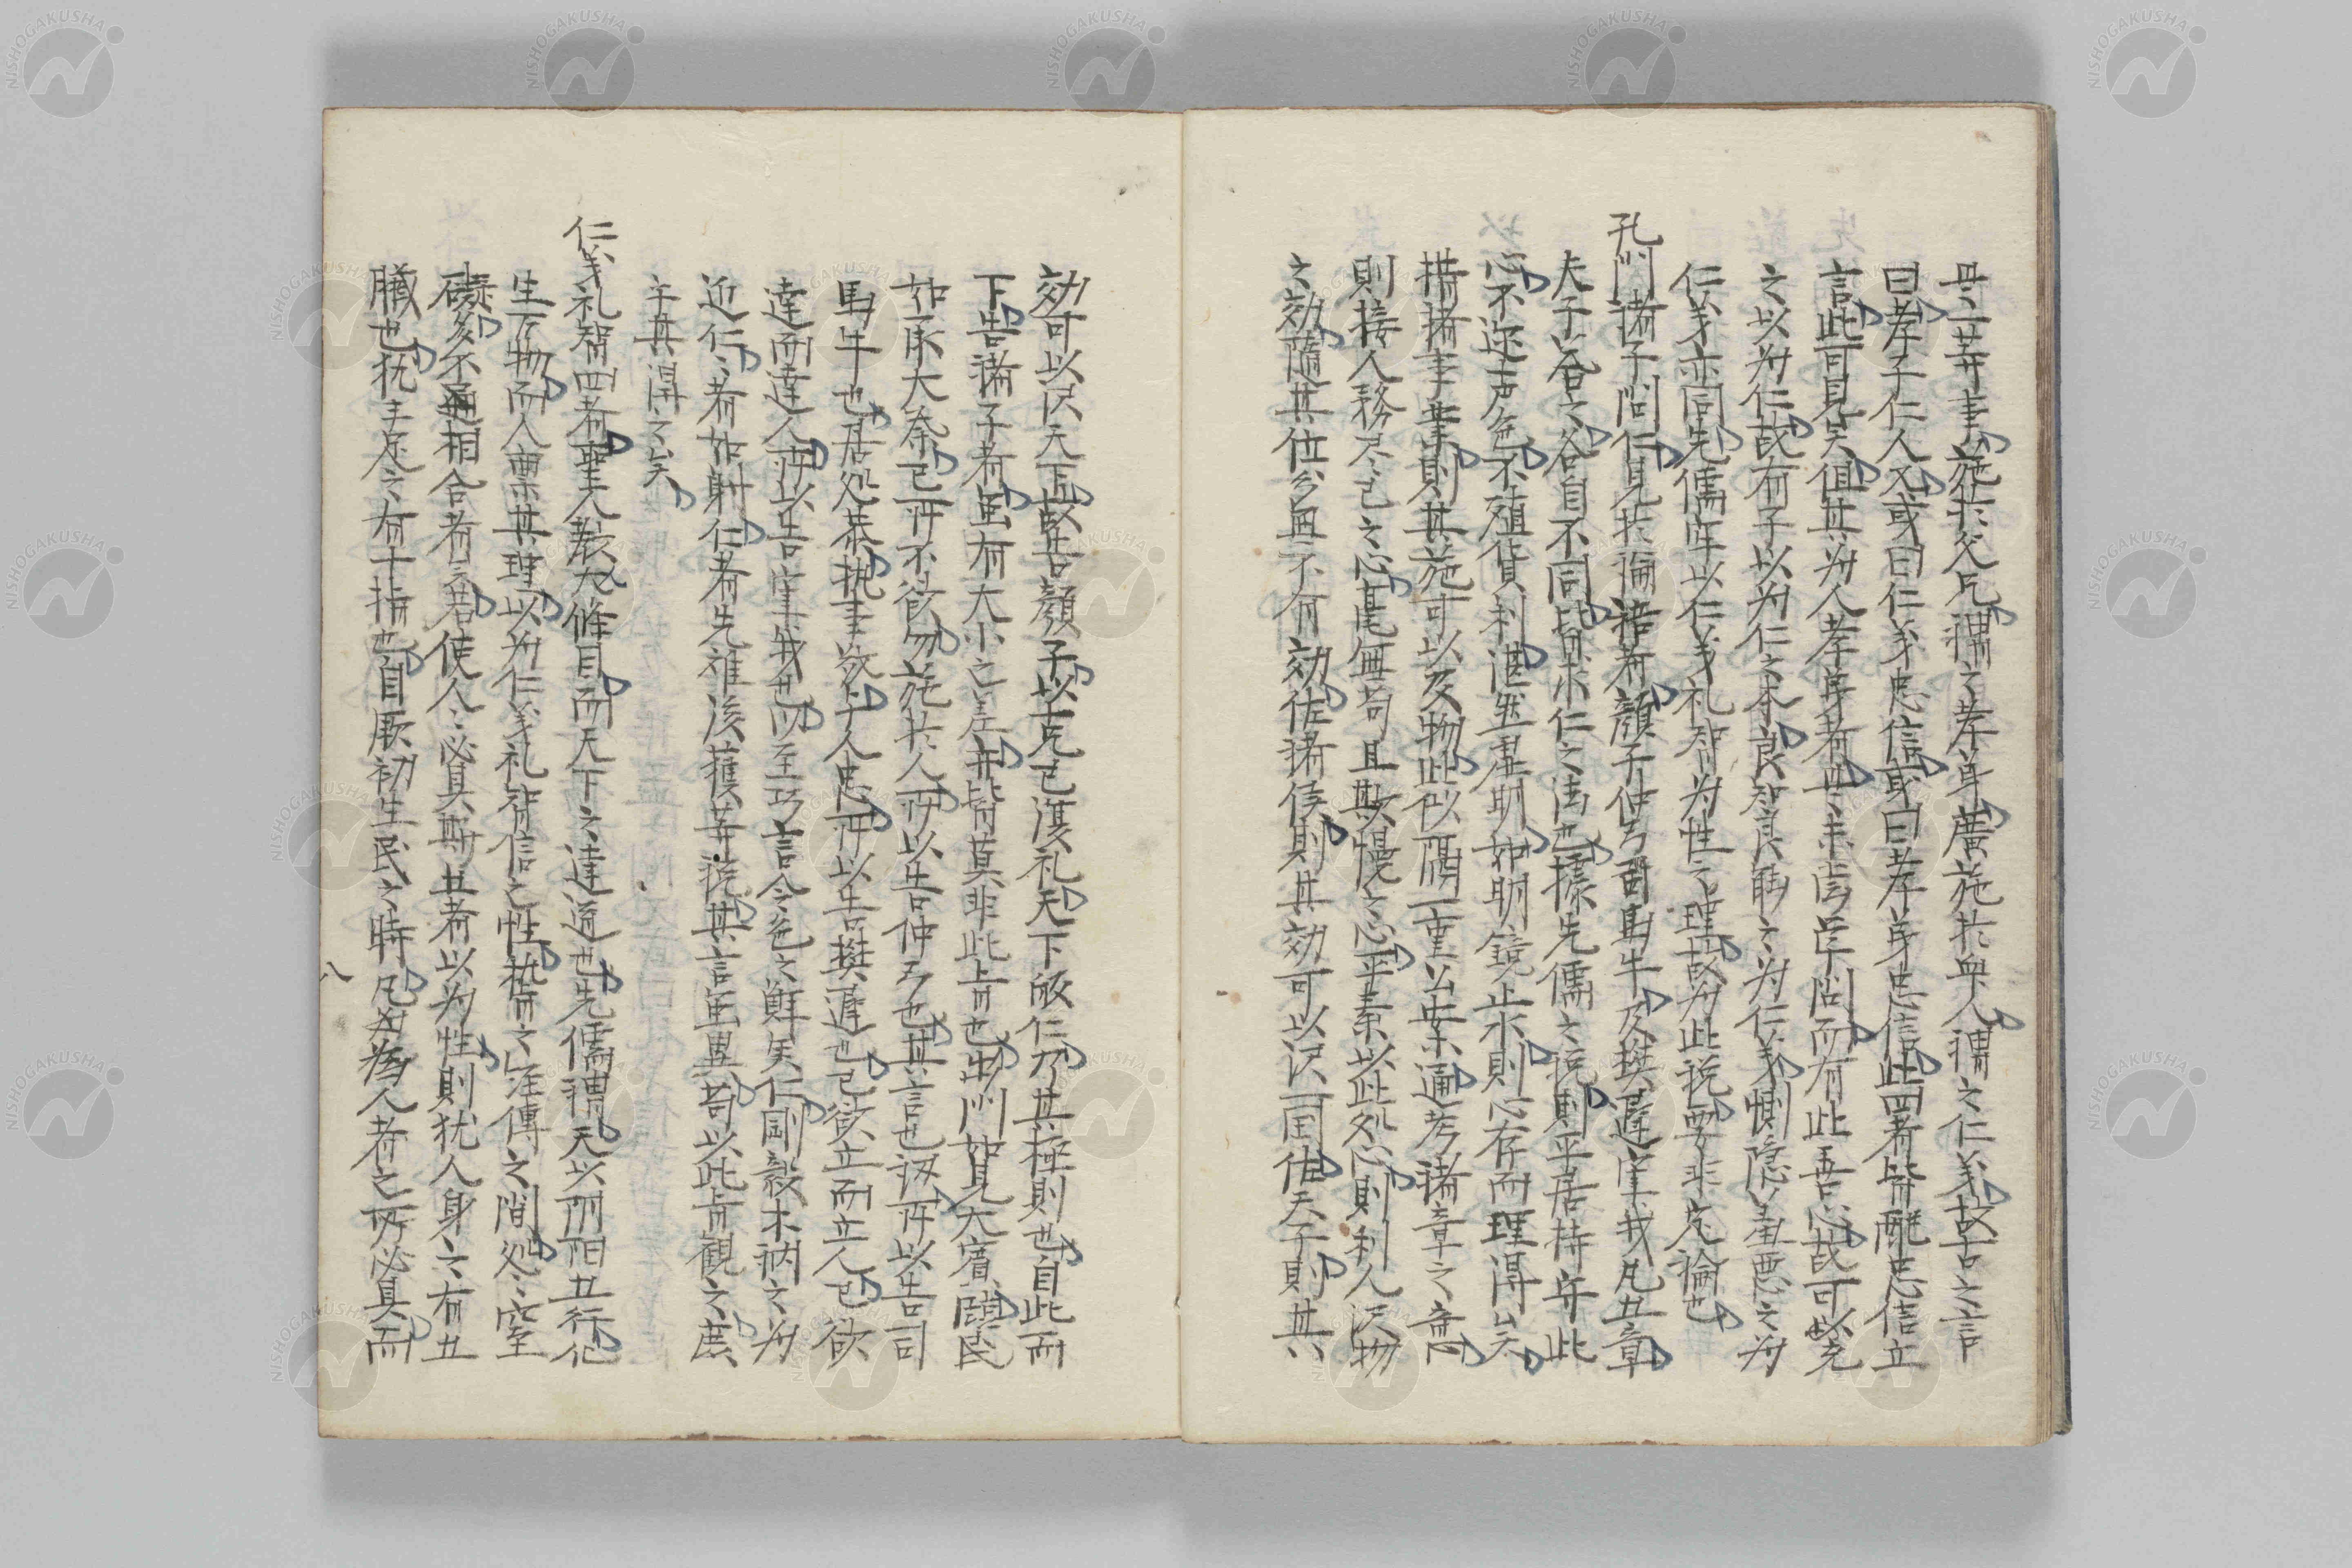 其二等事施於父兄謂之孝弟廣施於與人謂之仁義故古之言
曰孝子仁人又或曰仁義忠信或曰孝弟忠信此四者皆配忠信立
言此可見矣但其為人孝弟者其未嘗学問而有此吾心故可以充
之以為仁故有子以為仁之本良智良能之為仁義惻隠羞悪之為
仁義亦同先儒唯以仁義礼智為性之理故為此説要非定論也
孔門諸子問仁見於論語者顔子仲弓司馬牛及樊遲宰我凡五章
夫子答之各自不同皆求仁之法也據先儒之説則平居持守此
心不迩声色不殖貨利湛然虚明如明鏡止水則心存而理得矣
措諸事業則其施可以及物此似隔一重公案遍考諸章之意
則接人務尽己之心毫無苟且欺慢之心平素以此処心則利人沢物
之効随其位分無不有効佐諸侯則其効可以沢一国佐天子則其
効可以沢天下故告顔子以克己復礼天下皈仁乃其極則也自此而
下告諸子者虽有大小之差并皆莫非此旨也出門如見大賓、臨民
如承大祭己所不欲勿施於人所以告仲弓也其言也訒所以告司
馬牛也居処恭執事敬与人忠所以告樊遲也己欲立而立人己欲
達而達人所以告宰我也以至巧言令色之鮮矣仁剛毅木訥之為
近仁、者如射仁者先難後獲等説其言虽異苟以此旨観之庶
乎其得之矣
仁義礼智四者聖人教之條目而天下之達道也先儒謂天以阴阳五行化
生万物而人稟其理以為仁義礼智信之性散之経傳之間処、窒
礙多不通相合者云若使人、必具斯五者以為性則犹人身之有五
臓也犹手足之有十指也自厥初生民之時凡為人者之所必具而
八